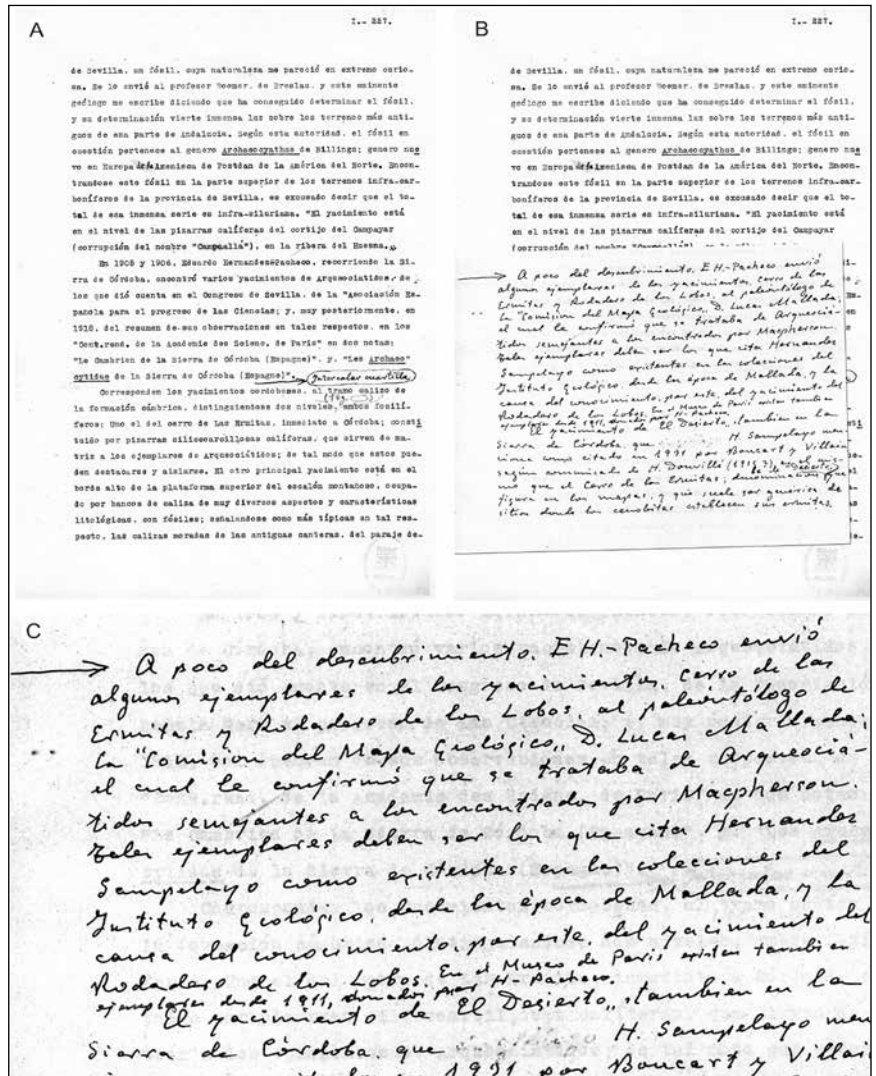 A
I.- 227.
de Sevilla, un fósil, cuya naturaleza me pareció en extremo curio-
sa. Se lo envié al profesor Roemer, de Breslau, y este eminente
geólogo me escribe diciendo que ha conseguido determinar el fósil,
y su determinación vierte inmensa luz sobre los terrenos más anti-
guos de esa parte de Andalucía. Según esta autoridad, el fósil en
cuestión pertenece al genero Archaeocyathus de Billings; genero nue
vo en Europa de la arenisca de Postdan de la América del Norte. Encon-
trandose este fósil en la parte superior de los terrenos infra-car-
boníferos de la provincia de Sevilla, es excusado decir que el to-
tal de esa inmensa serie es infra-siluriana. "El yacimiento está
en el nivel de las pizarras calíferas del cortijo del Campayar
(corrupción del nombre "Campallá"), en la ribera del Huesna.
En 1905 y 1906, Eduardo Hernandez-Pacheco, recorriendo la Sie-
rra de Córdoba, encontró varios yacimientos de Arqueociátidos, de
los que dió cuenta en el Congreso de Sevilla, de la "Asociación Es-
pañola para el progreso de las Ciencias; y, muy posteriormente, en
1918, del resumen de sus observaciones en tales respectos, en los
"Cont.rend. de la Academie des Scienc. de Paris" en dos notas:
"Le Cambrien de la Sierra de Córdoba (Espagne)". y, "Les Archaeo
cytidae de la Sierra de Córdoba (Espagne)". Intercalar cuartilla
Corresponden los yacimientos cordobeses, al tramo calizo de
la formación cámbrica, distinguiendose dos niveles, ambos fosilí-
feros: Uno el del cerro de Las Ermitas, inmediato a Córdoba; consti
tuido por pizarras siliceoarcillosas calíferas, que sirven de ma-
triz a los ejemplares de Arqueociátidos; de tal modo que estos pue-
den destacarse y aislarse. El otro principal yacimiento está en el
borde alto de la plataforma superior del escalón montañoso, ocupa-
do por bancos de caliza de muy diversos aspectos y características
litológicas, con fósiles; señalandose como más típicas en tal res-
pecto, las calizas moradas de las antiguas canteras, del paraje de-
B
I.- 227.
de Sevilla, un fósil, cuya naturaleza me pareció en extremo curio-
sa. Se lo envié al profesor Roemer, de Breslau, y este eminente
geólogo me escribe diciendo que ha conseguido determinar el fósil,
y su determinación vierte inmensa luz sobre los terrenos más anti-
guos de esa parte de Andalucía. Según esta autoridad, el fósil en
cuestión pertenece al genero Archaeocyathus de Billings; genero nue
vo en Europa de la arenisca de Postdan de la América del Norte. Encon-
trandose este fósil en la parte superior de los terrenos infra-car-
boníferos de la provincia de Sevilla, es excusado decir que el to-
tal de esa inmensa serie es infra-siluriana. "El yacimiento está
en el nivel de las pizarras calíferas del cortijo del Campayar
(corrupción del nombre
A poco del descubrimiento, E H.-Pacheco envió
algunos ejemplares de los yacimientos, cerro de las
Ermitas y Rodadero de los Lobos, al paleontólogo de
la "Comision del Mapa Geológico", D. Lucas Mallada,
el cual le confirmó que se trataba de Arqueociá-
tidos semejantes a los encontrados por Macpherson.
Tales ejemplares deben ser los que cita Hernandez
Sampelayo como existentes en las colecciones del
Instituto Geológico, desde la época de Mallada, y la
causa del conocimiento, por este, del yacimiento del
Rodadero de los Lobos. En el Museo de Paris existen tambien
ejemplares desde 1911, donados por H-Pacheco.
El yacimiento de El Desierto, tambien en la
Sierra de Córdoba, que H. Sampelayo men
ciona como citado en 1931 por Boucart y Villain
según comunicado de H. Douvillé (1915?), es el mis-
mo que el Cerro de las Ermitas; denominación que
figura en los mapas, y que suele ser genérica de
sitios donde los cenobitas establecen sus ermitas.
C
A poco del descubrimiento, E H.-Pacheco envió
algunos ejemplares de los yacimientos, cerro de las
Ermitas y Rodadero de los Lobos, al paleontólogo de
la "Comision del Mapa Geológico", D. Lucas Mallada,
el cual le confirmó que se trataba de Arqueociá-
tidos semejantes a los encontrados por Macpherson.
Tales ejemplares deben ser los que cita Hernandez
Sampelayo como existentes en las colecciones del
Instituto Geológico, desde la época de Mallada, y la
causa del conocimiento, por este, del yacimiento del
Rodadero de los Lobos. En el Museo de Paris existen tambien
ejemplares desde 1911, donados por H-Pacheco.
El yacimiento de El Desierto, tambien en la
Sierra de Córdoba que H. Sampelayo men
1931 por Boucart y Villai